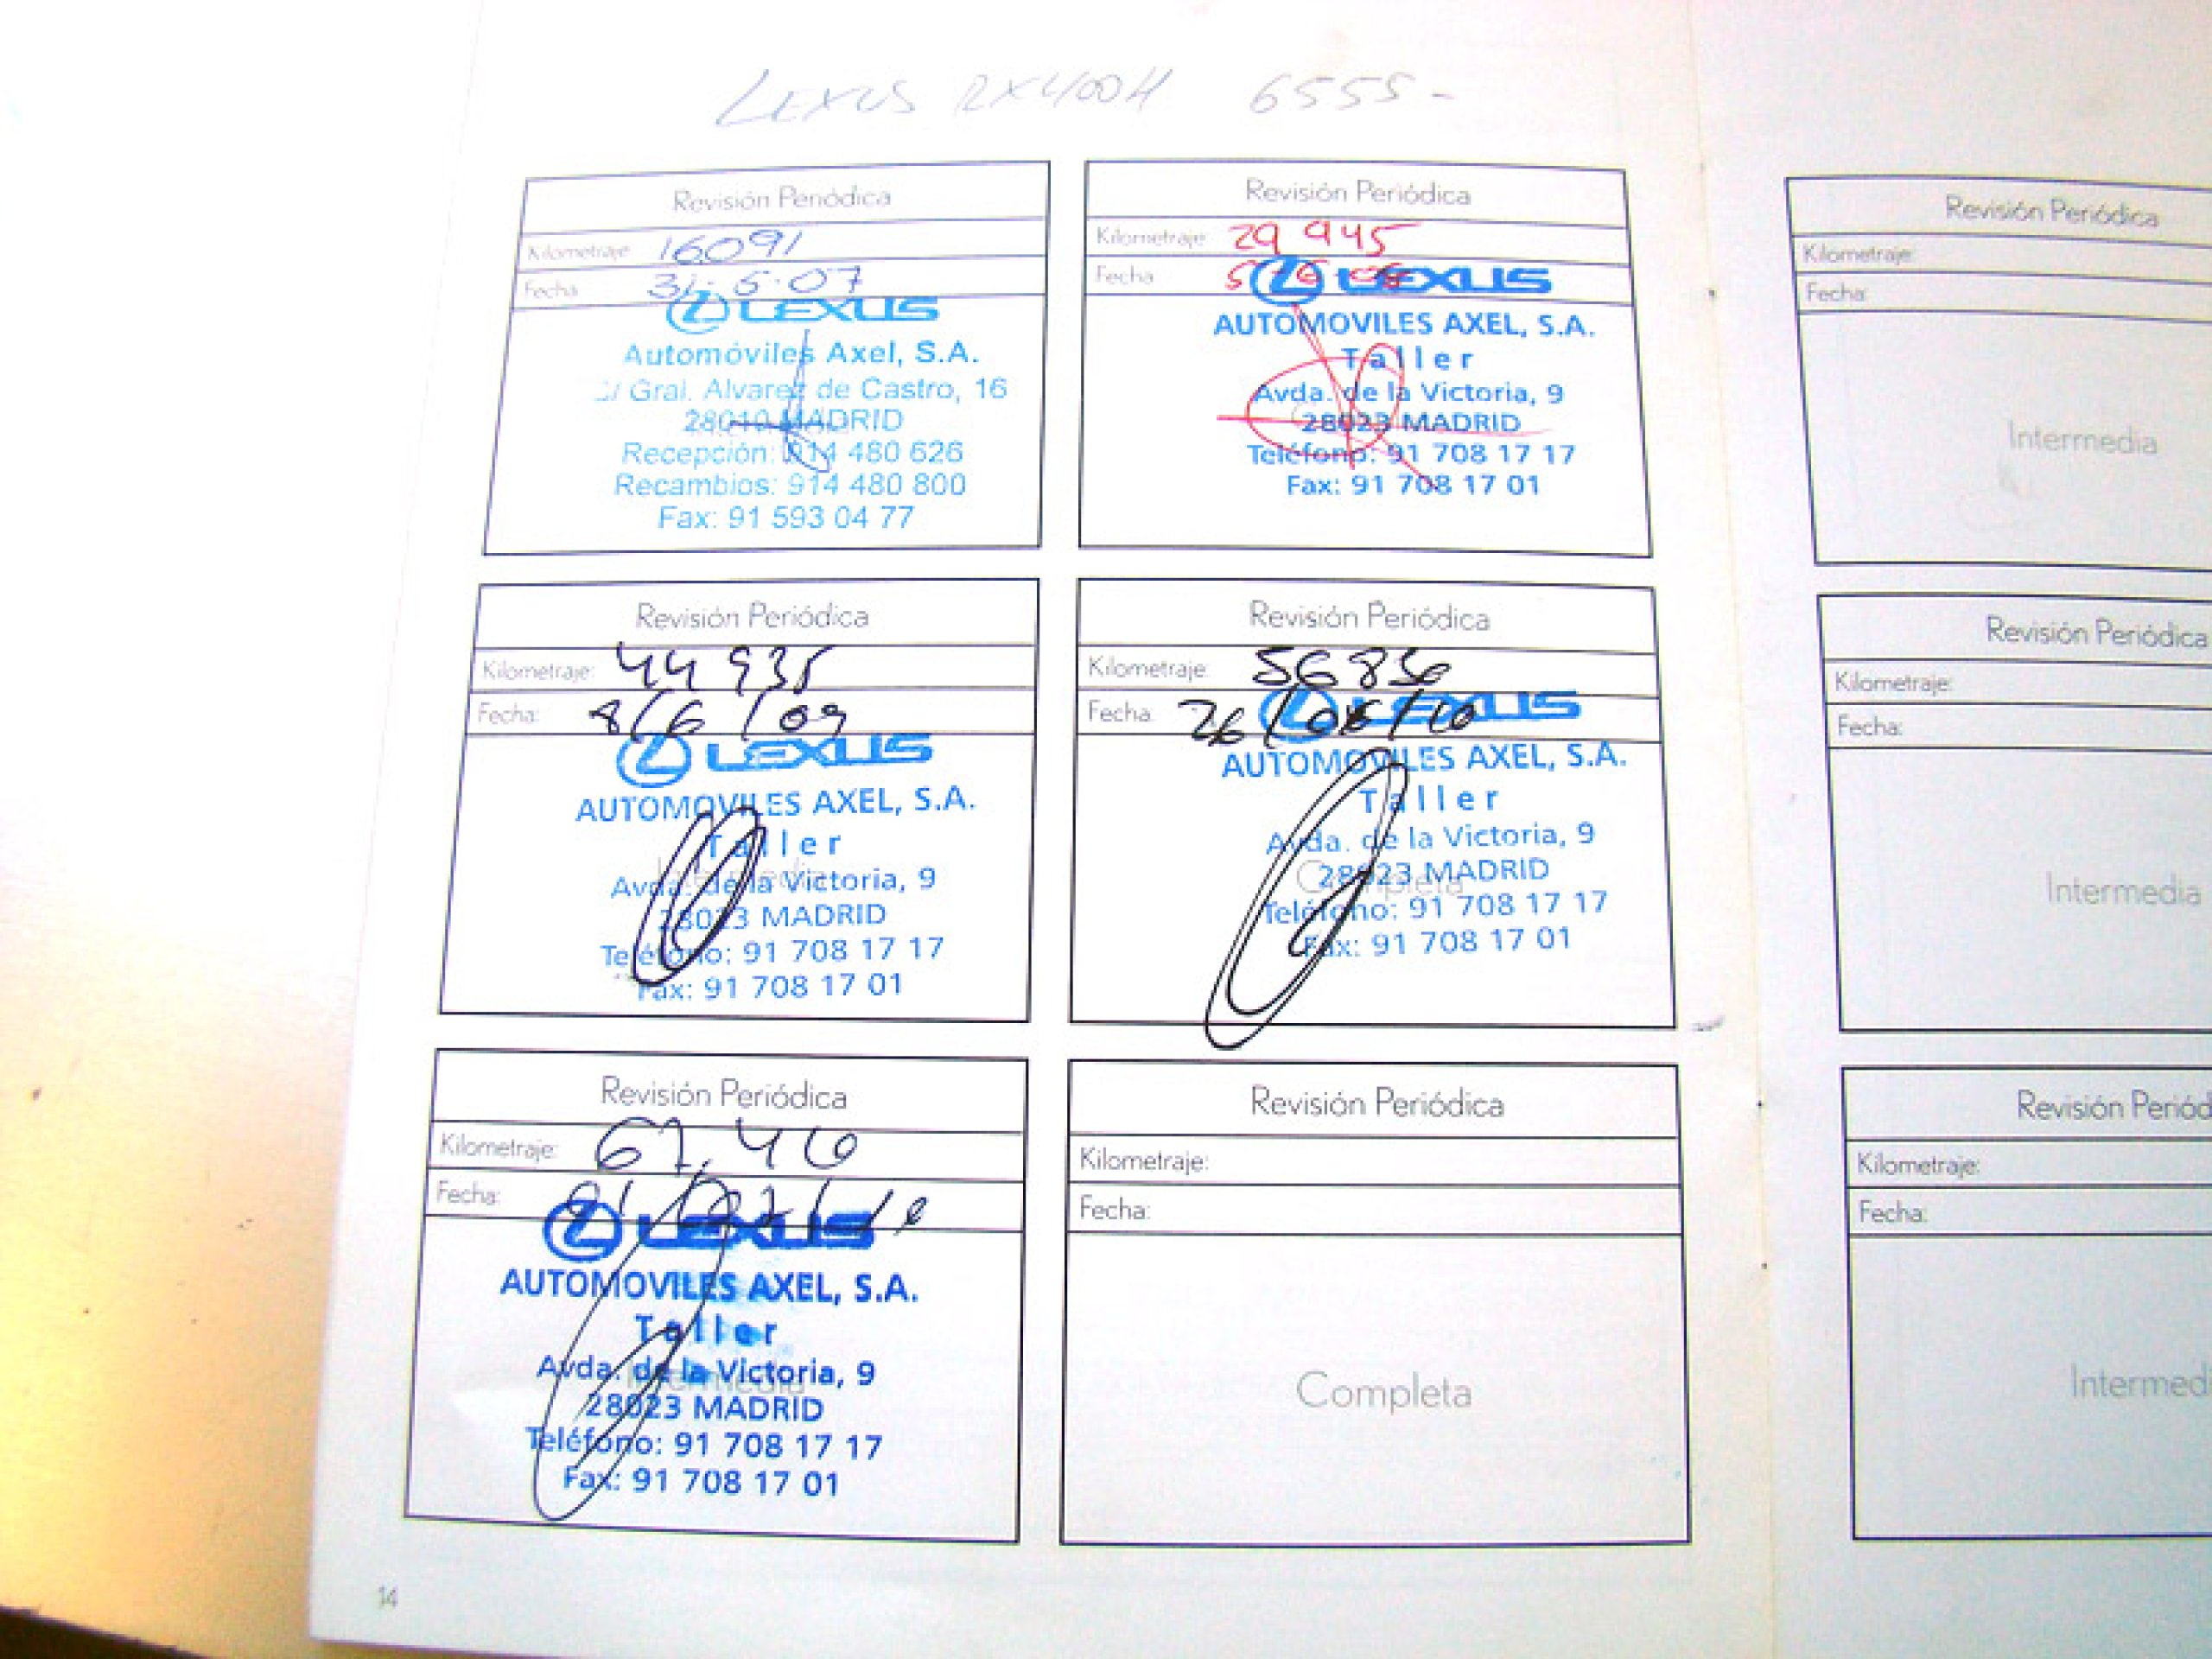 LEXUS RX400H 6555-
Revisión Periódica
Kilometraje: 16091
Fecha: 31-5-07
LEXUS
Automóviles Axel, S.A.
C/ Gral. Alvarez de Castro, 16
28010 MADRID
Recepción: 914 480 626
Recambios: 914 480 800
Fax: 91 593 04 77
Revisión Periódica
Kilometraje: 29 945
Fecha
LEXUS
AUTOMOVILES AXEL, S.A.
Taller
Avda. de la Victoria, 9
28023 MADRID
Teléfono: 91 708 17 17
Fax: 91 708 17 01
Revisión Periódica
Kilometraje:
Fecha:
Intermedia
Revisión Periódica
Kilometraje: 44 935
Fecha: 8/6/09
LEXUS
AUTOMOVILES AXEL, S.A.
Taller
Intermedia
Avda. de la Victoria, 9
28023 MADRID
Teléfono: 91 708 17 17
Fax: 91 708 17 01
Revisión Periódica
Kilometraje: 56836
Fecha: 26/05/10
LEXUS
AUTOMOVILES AXEL, S.A.
Taller
Avda. de la Victoria, 9
28023 MADRID
Completa
Teléfono: 91 708 17 17
Fax: 91 708 17 01
Revisión Periódica
Kilometraje:
Fecha:
Intermedia
Revisión Periódica
Kilometraje:
Fecha:
LEXUS
AUTOMOVILES AXEL, S.A.
Taller
Avda. de la Victoria, 9
Intermedia
28023 MADRID
Teléfono: 91 708 17 17
Fax: 91 708 17 01
Revisión Periódica
Kilometraje:
Fecha:
Completa
Revisión Periód
Kilometraje:
Fecha:
Intermedi
14